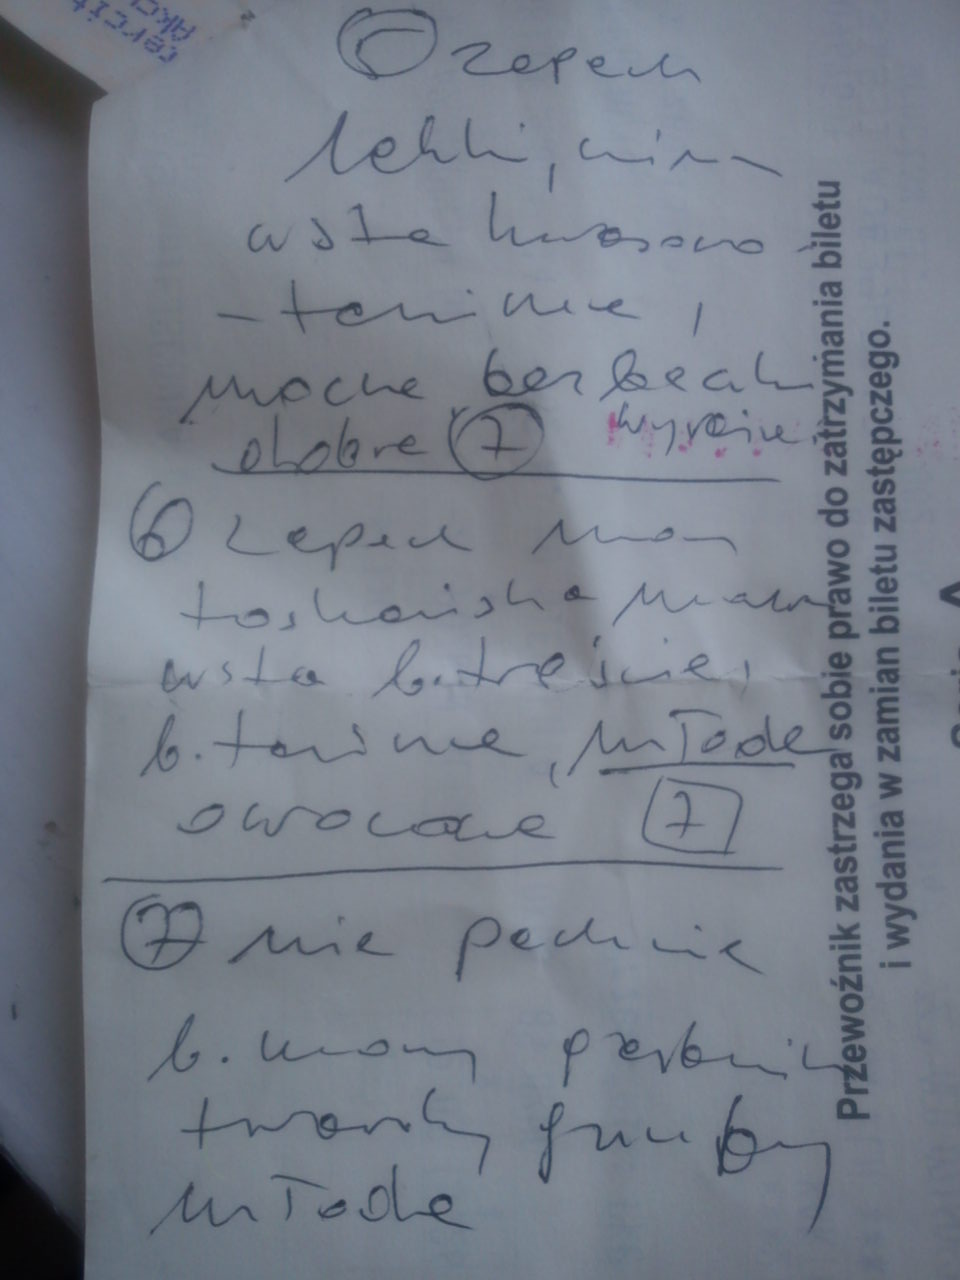 ⑤ zapach
lekki, win
usta kwasowo -
- taniczne,
mocne bez beczk
dobre ⑦ wyraźne
⑥ zapach moc
toskańska
usta b. treściwe,
b. taniczne, młode
owocowe 7
⑦ nie pachnie
b. mocny garbnik
twardy gruby
młode
Przewoźnik zastrzega sobie prawo do zatrzymania biletu
i wydania w zamian biletu zastępczego.